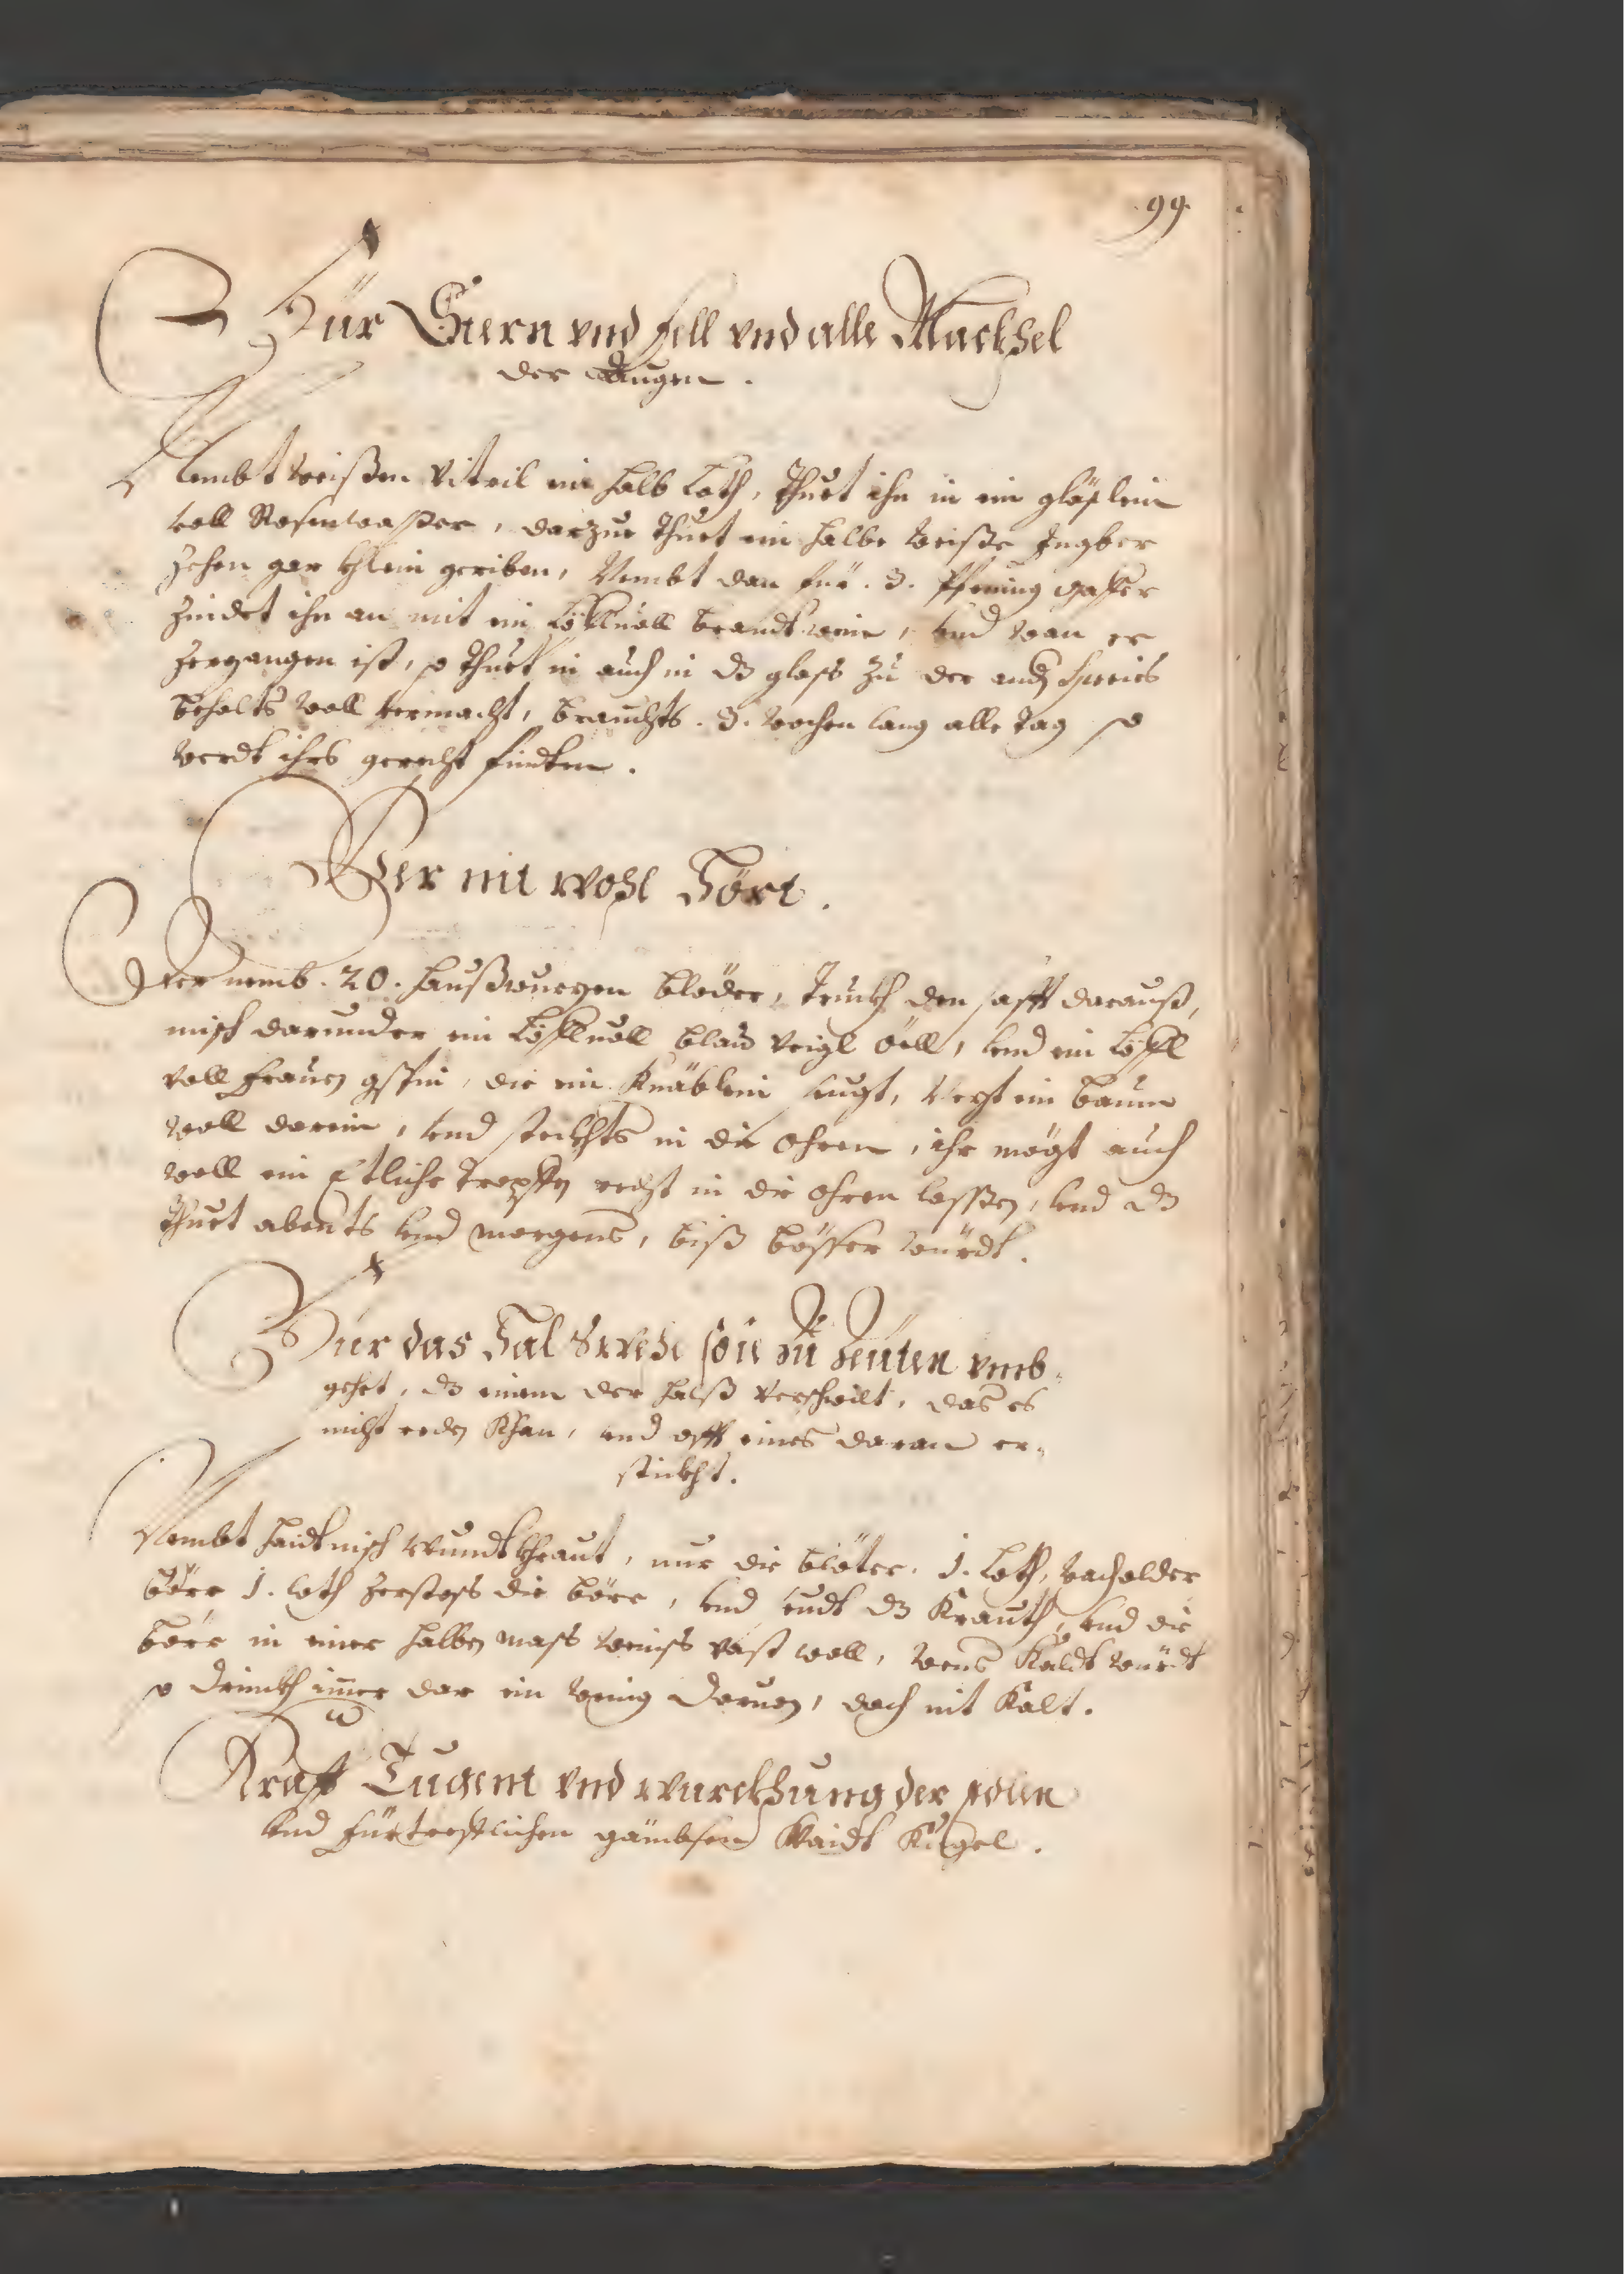 99.
Für Stern vnd fell vnd alle Mackhel
der Augen.
Nembt weißen vitril ein halb Loth, thuet ihn in ein gläslein
voll Rosenwaßer, darzue thuet ein halbe weiße Ingber
zehen gar khlein geriben, Nembt dan für .3. Pfening gaffer
zündet ihn an mit ein Löffluoll brandtwein, vnd wan er
zergangen ist, so thuet in auch in dz glass zu der andern Speceis
behalts woll vermacht, brauchts .3. wochen lang alle tag so
werdt ihrs gerecht findten.
Wer nit wohl Hört.
Der nemb .20. haußwurzen blöder, truckh den safft darauß,
misch darunder ein Löffluoll blau veigl öell, vnd ein Löffl
voll frauen gspin, die ein Knäblein seugt, Nezt ein baum
woll darein, vnd steckhts in die ohren, ihr mögt auch
woll ein Etliche tropffen recht in die ohren lassen, vnd dz
thuet abents vnd morgens, biß bösser würdt.
Für das Hal Swehe so ie zu Zeiten vmb-
gehet, dz einem der halß verschwilt, das es
nicht reden Khan, vnd offt eines daran er-
stickht.
Nembt haidtnisch wundtkhraut, nur die blöter. 1. Loth, wacholder
börr 1. loth zerstoss die börr, vnd seudt dz Krauth, vnd die
börr in einer halben mass weinss vast woll, wens Kaldt würdt
so drinckh imer dar ein wenig daruon, doch nit Kalt.
Krafft Tugent vnd würckhung der Edlen
vnd fürtrefflichen gämbsen Waidt Kugel.